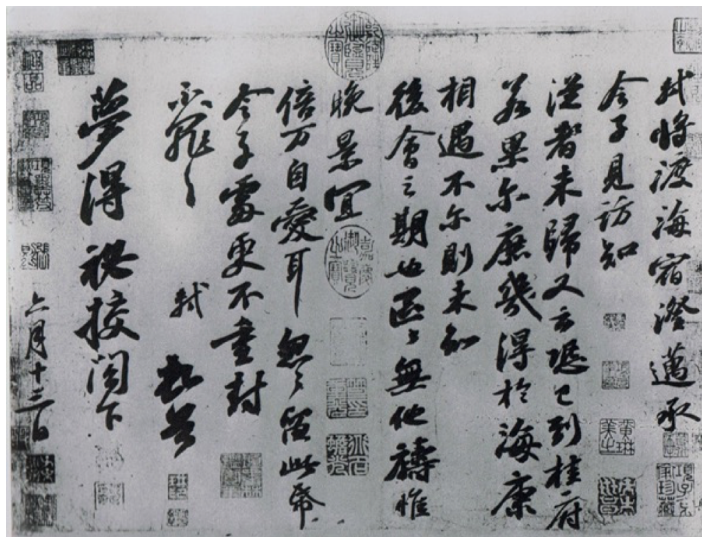 軾將渡海宿澄邁承
令子見訪知
從者未歸又云恐已到桂府
若果尔庶幾得於海康
相遇不尔則未知
後會之期也區區無他禱惟
晚景宜
倍万自愛耳忽忽留此帋
令子處更不重封
不罪不罪
軾頓首
夢得祕校閤下
六月十三日